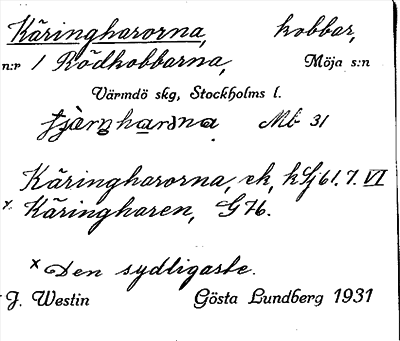 Käringharorna, kobbar,
n:r 1 Rödkobbarna, Möja s:n
Värmdö skg, Stockholms l.
Mb 31
Käringharorna, ek, hSj 61. 7. VI
x. Käringharen, G Hb.
x Den sydligaste.
J. Westin Gösta Lundberg 1931